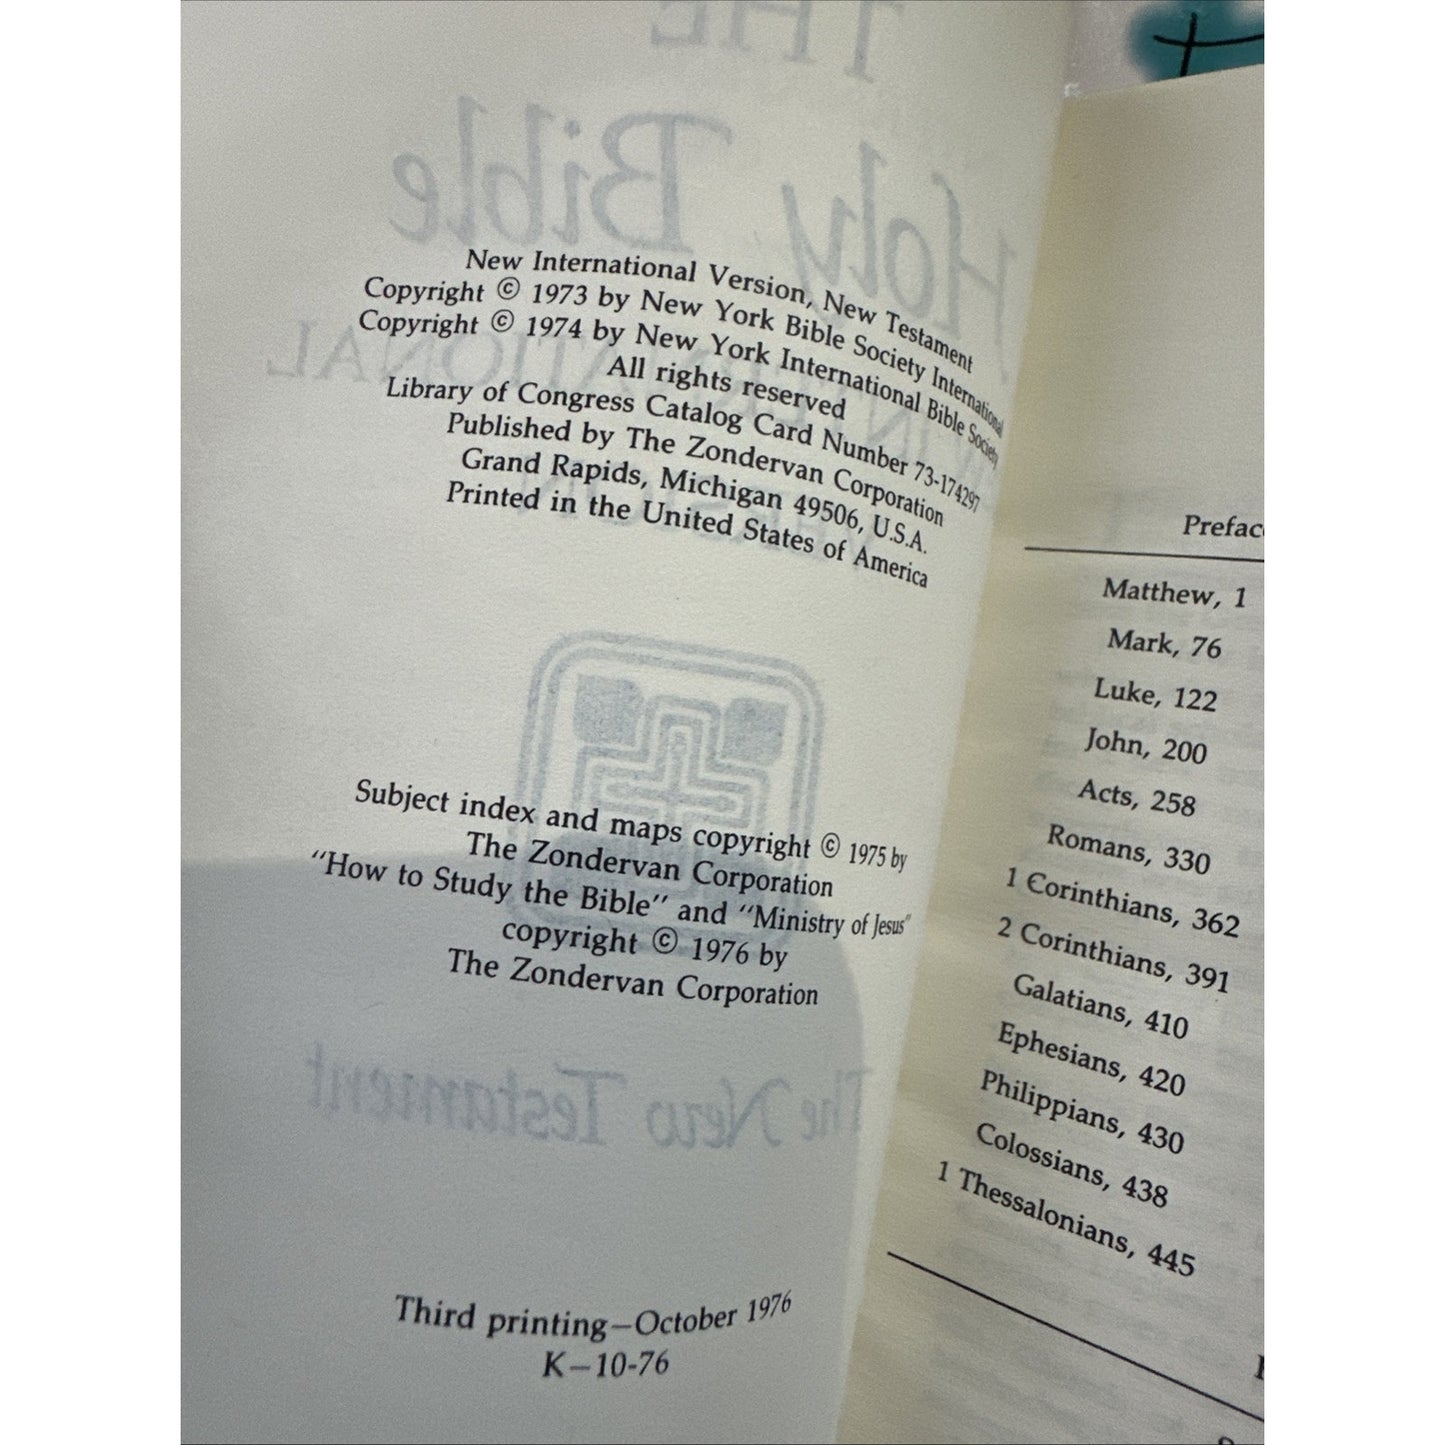 New International Version, New Testament
Copyright © 1973 by New York Bible Society International
Copyright © 1974 by New York International Bible Society
All rights reserved
Library of Congress Catalog Card Number 73-174297
Published by The Zondervan Corporation
Grand Rapids, Michigan 49506, U.S.A.
Printed in the United States of America
Subject index and maps copyright © 1975 by
The Zondervan Corporation
"How to Study the Bible" and "Ministry of Jesus"
copyright © 1976 by
The Zondervan Corporation
Third printing—October 1976
K—10-76
THE
Holy Bible
INTERNATIONAL
The New Testament
Matthew, 1
Mark, 76
Luke, 122
John, 200
Acts, 258
Romans, 330
1 Corinthians, 362
2 Corinthians, 391
Galatians, 410
Ephesians, 420
Philippians, 430
Colossians, 438
1 Thessalonians, 445